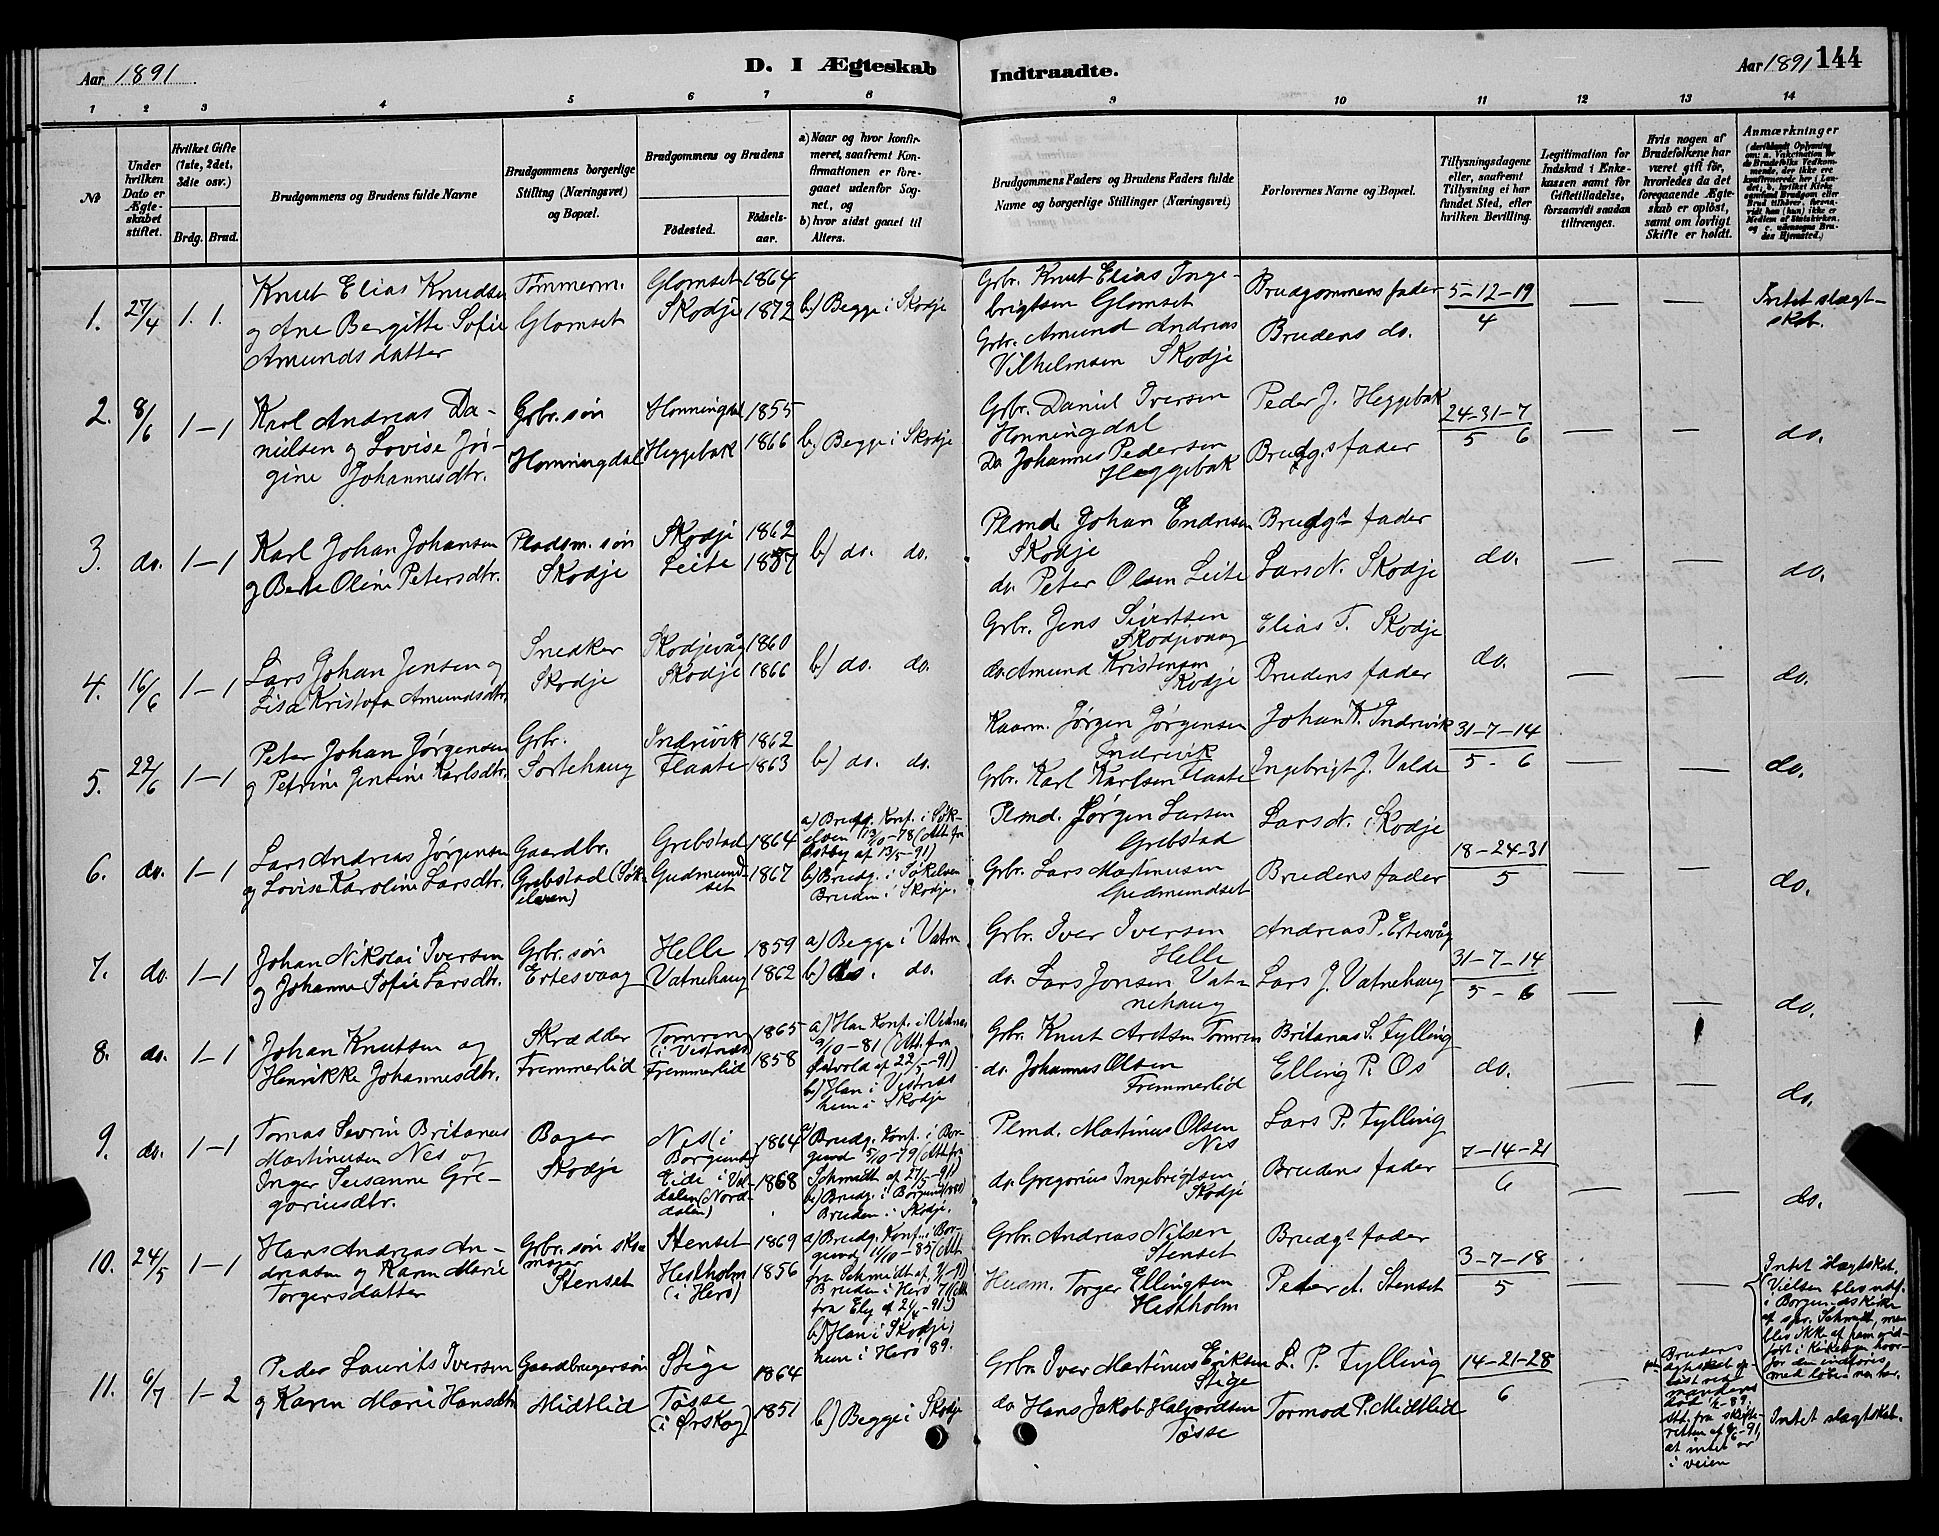 Aar 1891
D. I Ægteskab Indtraadte.
Aar 1891 144
1 2 3 4 5 6 7 8 9 10 11 12 13 14
No
Under hvilken Dato er Ægteskabet stiftet.
Hvilket Gifte (1ste, 2det, 3die osv.)
Brdg. Brud.
Brudgommens og Brudens fulde Navne
Brudgommens borgerlige Stilling (Næringsvei) og Bopæl.
Brudgommens og Brudens
Fødested.
Fødselsaar.
a) Naar og hvor konfirmeret, saafremt Konfirmationen er foregaaet udenfor Sognet, og
b) hvor sidst gaaet til Alters.
Brudgommens Faders og Brudens Faders fulde Navne og borgerlige Stillinger (Næringsvei)
Forlovernes Navne og Bopæl.
Tillysningsdagene eller, saafremt Tillysning ei har fundet Sted, efter hvilken Bevilling.
Legitimation for Indskud i Enkekassen samt for Giftetilladelse, forsaavidt saadan tiltrænges.
Hvis nogen af Brudefolkene har været gift før, hvorledes da det foregaaende Ægteskab er opløst, samt om lovligt Skifte er holdt.
Anmærkninger
1. 27/4 1. 1.
Knut Elias Knudsen
og Ane Bergitte Sofie
Amundsdatter
Tømmerm.
Glomset
Glomset 1864
Skodje 1872
b) Begge i Skodje
Grbr. Knut Elias Inge-
brigtsen Glomset
Grbr. Amund Andreas
Vilhelmsen Skodje
Brudgommens fader
Brudens do.
5-12-19
4
— —
Intet slægt-
skab.
2. 8/6 1-1
Karl Andreas Da-
nielsen og Lovise Jør-
gine Johannesdtr.
Grbr. søn
Honningdal
Honningdal 1855
Heggebak 1866
b) Begge i Skodje
Grbr. Daniel Iversen
Honningdal
Do Johannes Pedersen
Heggebak
Peder J. Heggebak
Brudg.s fader
24-31-7
5 6
— —
do.
3. do. 1-1
Karl Johan Johansen
og Berte Oline Petersdtr.
Pladsm. søn
Skodje
Skodje 1862
Leite 1857
b) do. do.
Plmd. Johan Endresen
Skodje
do. Peter Olsen Leite
Brudgs fader
Lars N. Skodje
do.
— —
do.
4. 16/6 1-1
Lars Johan Jensen og
Lisa Kristofa Amundsdtr.
Snedker
Skodje
Skodjevåg 1860
Skodje 1866
b) do. do.
Grbr. Jens Sivertsen
Skodjevaag
do. Amund Kristensen
Skodje
Elias T. Skodje
Brudens fader
do.
— —
do.
5. 22/6 1-1
Peter Johan Jørgensen
og Petrine Jensine Karlsdtr.
Grbr.
Sortehaug
Indrevik 1862
Flaate 1863
b) do. do.
Kaarm. Jørgen Jørgensen
Indrevik
Grbr. Karl Karlsen Flaate
Johan K. Indrevik
Ingebrigt J. Valde
31-7-14
5 - 6
— —
do.
6. do. 1-1
Lars Andreas Jørgensen
og Lovise Karoline Larsdtr.
Gaardbr.
Grebstad (Søk-
elven)
Grebstad 1864
Gudmund-
set 1867
a) Brudg. Konf. i Søk-
elven 13/10-78 (Att. fra
Østbye af 13/5-91)
b) Brudg. i Søkelven
Bruden i Skodje.
Plmd. Jørgen Larsen
Grebstad
Grbr. Lars Martinusen
Gudmundset
Lars N. Skodje
Brudens fader
18-24-31
5
— —
do.
7. do. 1-1
Johan Nikolai Iversen
og Johanne Sofie Larsdtr.
Grbr. søn
Ertesvaag
Helle 1859
Vatnehaug 1862
a) Begge i Vatne
b) do. do.
Grbr. Iver Iversen
Helle
do. Lars Jonsen Vat-
nehaug
Andreas P. Ertesvåg
Lars J. Vatnehaug
31-7-14
5 - 6
— —
do.
8. do. 1-1
Johan Knutsen og
Henrikke Johannesdtr.
Skrædder
Fremmerlid
Tomren
(i Vestnæs) 1865
Fremmerlid 1858
a) Han Konf. i Vestnæs
9/10-81 (Att. fra
af 22/5-91)
b) Han i Vestnæs
hun i Skodje
Grbr. Knut Arntsen Tomren
do. Johannes Olsen
Fremmerlid
Britanus S. Fylling
Elling P. Os
do.
— —
do.
9. do. 1-1
Tomas Sevrin Britanus
Martinusen Nes og
Inger Susanne Gre-
goriusdtr.
Bager
Skodje
Nes (i
Borgund) 1864
Eide i Val-
dalen (Nord-
dalen) 1868
a) Brudg. Konf. i Bor-
gund 5/10-79 (Att. fra
Schmidt af 27/5-91)
b) Brudg. i Borgund (1880)
Bruden i Skodje.
Plmd. Martinus Olsen
Nes
do. Gregorius Ingebrigtsen
Skodje
Lars P. Fylling
Brudens fader
7-14-21
6
— —
do.
10. 24/5 1-1
Hans Andreas An-
dreasen og Karen Marie
Torgersdatter
Grbr. søn sko-
mager
Stenset
Stenset 1869
Hestholm
(i Herø) 1856
a) Brudg. Konf. i Bor-
gund 11/10-85 (Att.
fra Schmidt af
Bruden i Herø
fra Ely af
b) Han i Skodje,
hun i Herø 89.
Grbr. Andreas Nilsen
Stenset
Husm. Torger Ellingsen
Hestholm
Brudgs fader
Peder A. Stenset
3-7-18
5
— —
Intet slægtskab.
(Vielsen blev udf.
i Borgunds kirke
af spr. Schmidt, men
blev ikke af ham ind-
ført i Kirkebog hvor-
for den indføres
med løbe no. her.
11. 6/7 1-2
Peder Laurits Iversen
og Karen Marie Hansdtr.
Gaardbrugersøn
Midtlid
Stige 1864
Tøsse
(i Ørskog) 1851
b) Begge i Skodje
Grbr. Iver Martinus Eriksen
Stige
do Hans Jakob Halvardsen
Tøsse
L. P. Fylling
Tormod P. Midtlid
14-21-28
6
—
Brudens
ægteskab op-
løst ved
mandens
død
Att. fra skifte-
retten af 9/6-91,
at intet er
i veien
Intet slægtskab.